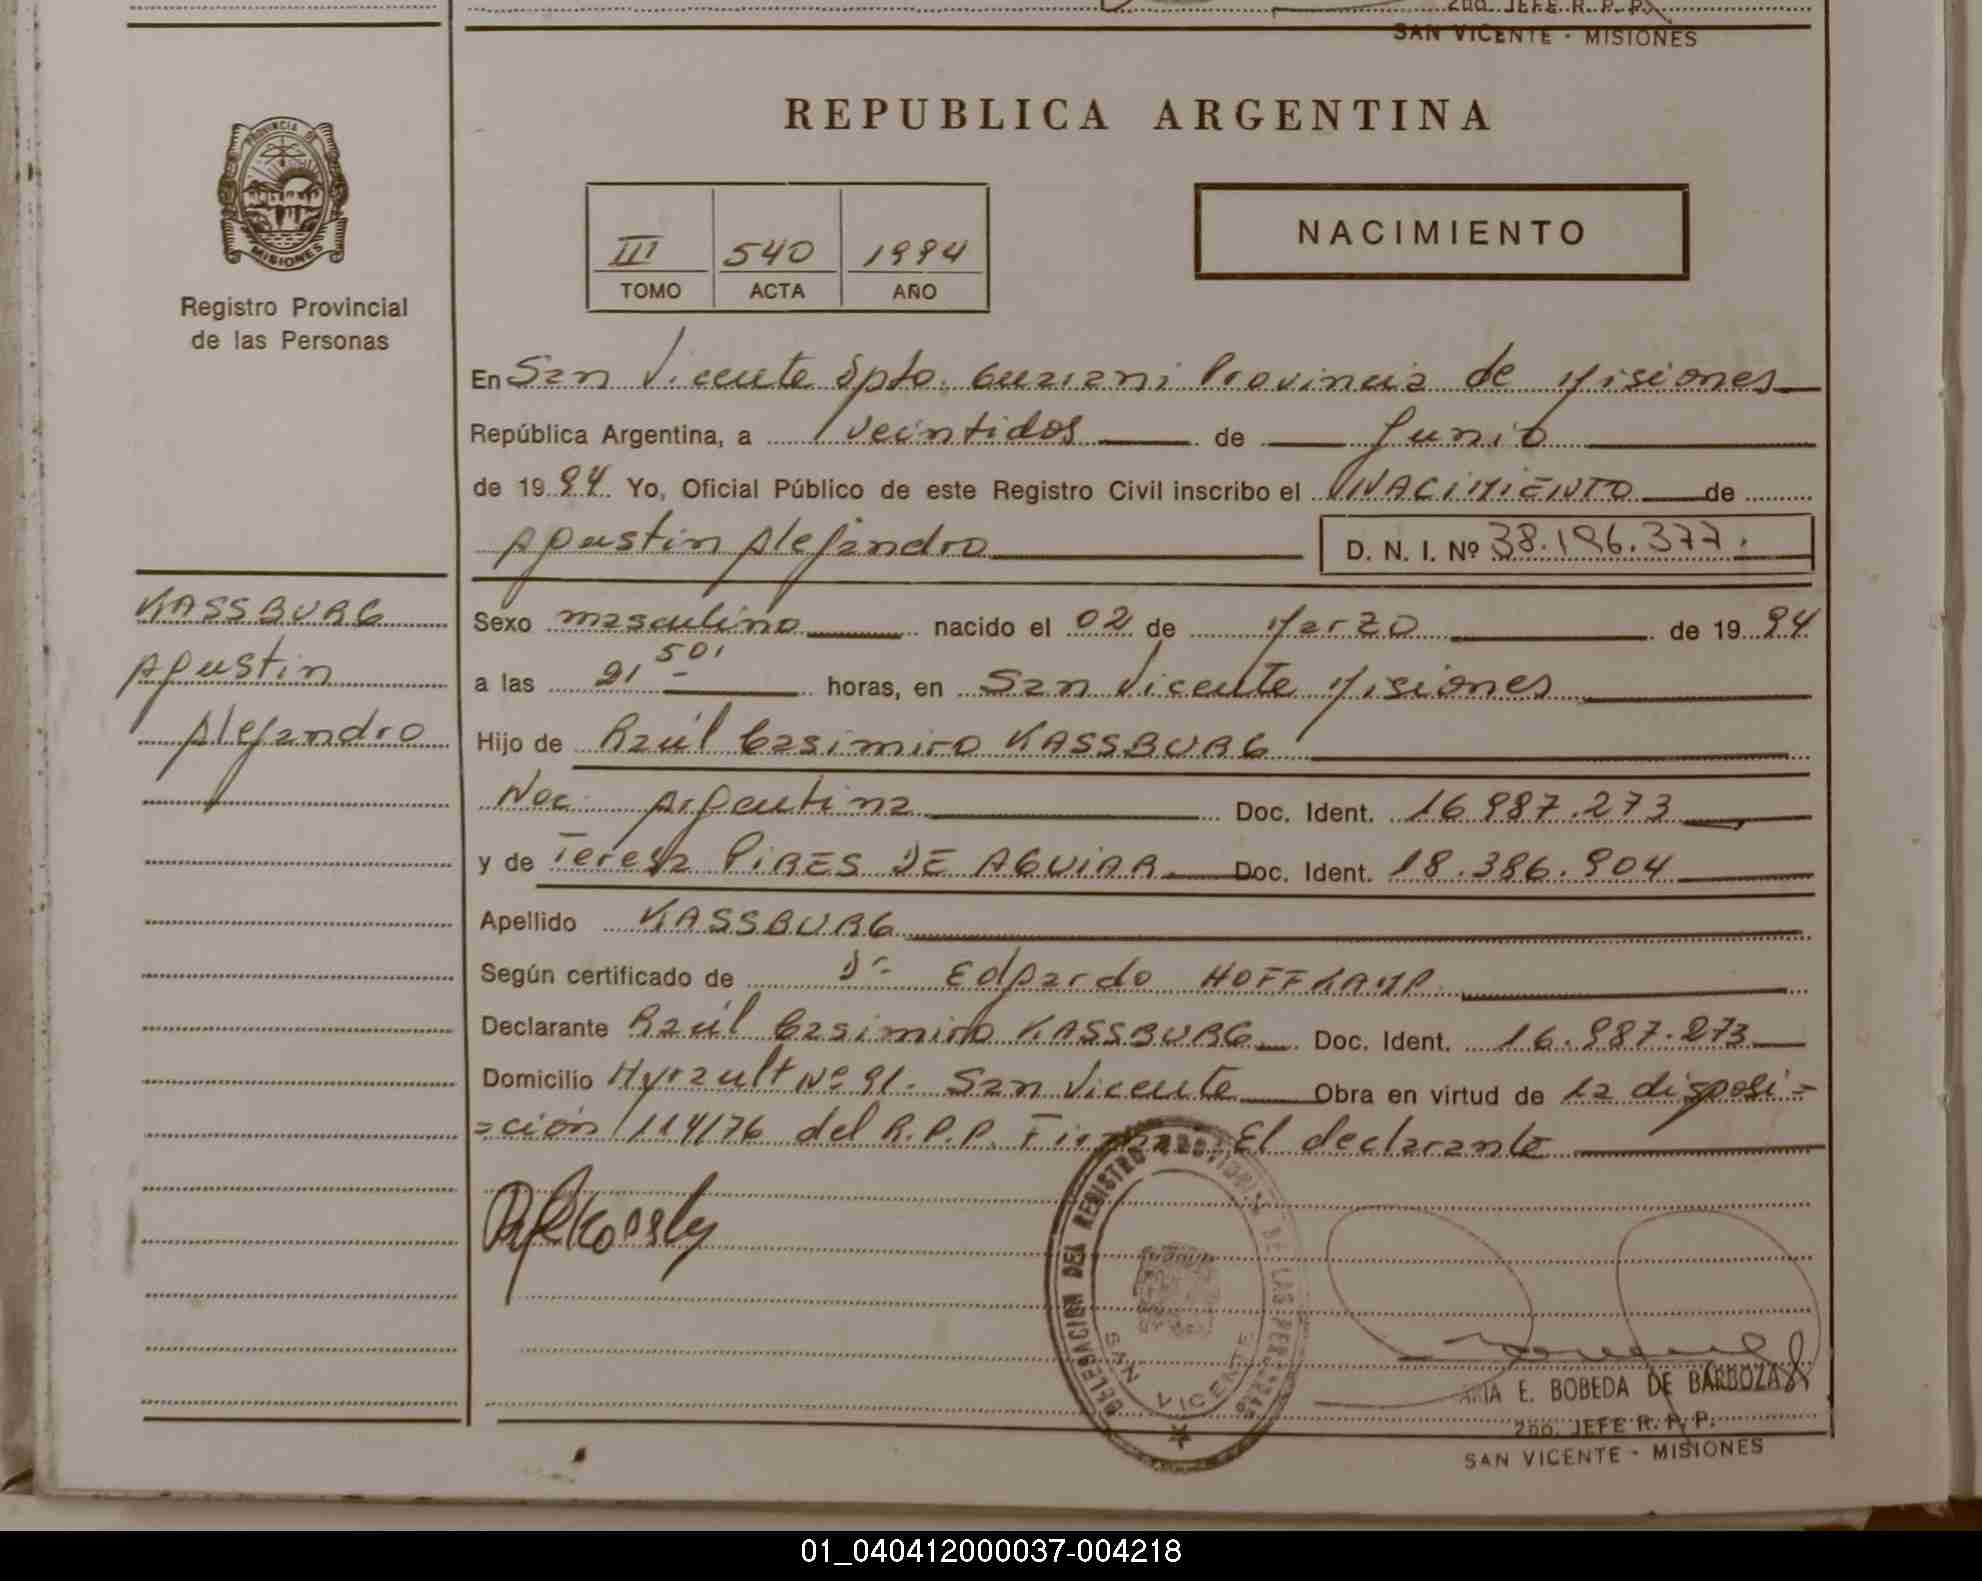 2do. JEFE R. P. P.
SAN VICENTE - MISIONES
REPUBLICA ARGENTINA
PROVINCIA DE
MISIONES
Registro Provincial
de las Personas
III 540 1994
TOMO ACTA AÑO
NACIMIENTO
En San Vicente Dpto. Guarani Provincia de Misiones
República Argentina, a veintidos de Junio
de 1994 Yo, Oficial Público de este Registro Civil inscribo el NACIMIENTO de
Agustin Alejandro D. N. I. Nº 38.196.377.
KASSBURG
Agustin
Alejandro
Sexo masculino nacido el 02 de Marzo de 1994
a las 21 50' horas, en San Vicente Misiones
Hijo de Raúl Casimiro KASSBURG
Nac. Argentina Doc. Ident. 16.987.273
y de Teresa PIRES DE AGUIAR Doc. Ident. 18.386.904
Apellido KASSBURG
Según certificado de Dr. Edgardo HOFFKAMP
Declarante Raúl Casimiro KASSBURG Doc. Ident. 16.987.273
Domicilio Nº 91. San Vicente Obra en virtud de la disposi-
=ción 114/76 del R.P.P. El declarante
DELEGACION DEL REGISTRO PROVINCIAL DE LAS PERSONAS
SAN VICENTE
E. BOBEDA DE BARBOZA
2do. JEFE R. P. P.
SAN VICENTE - MISIONES
01_040412000037-004218